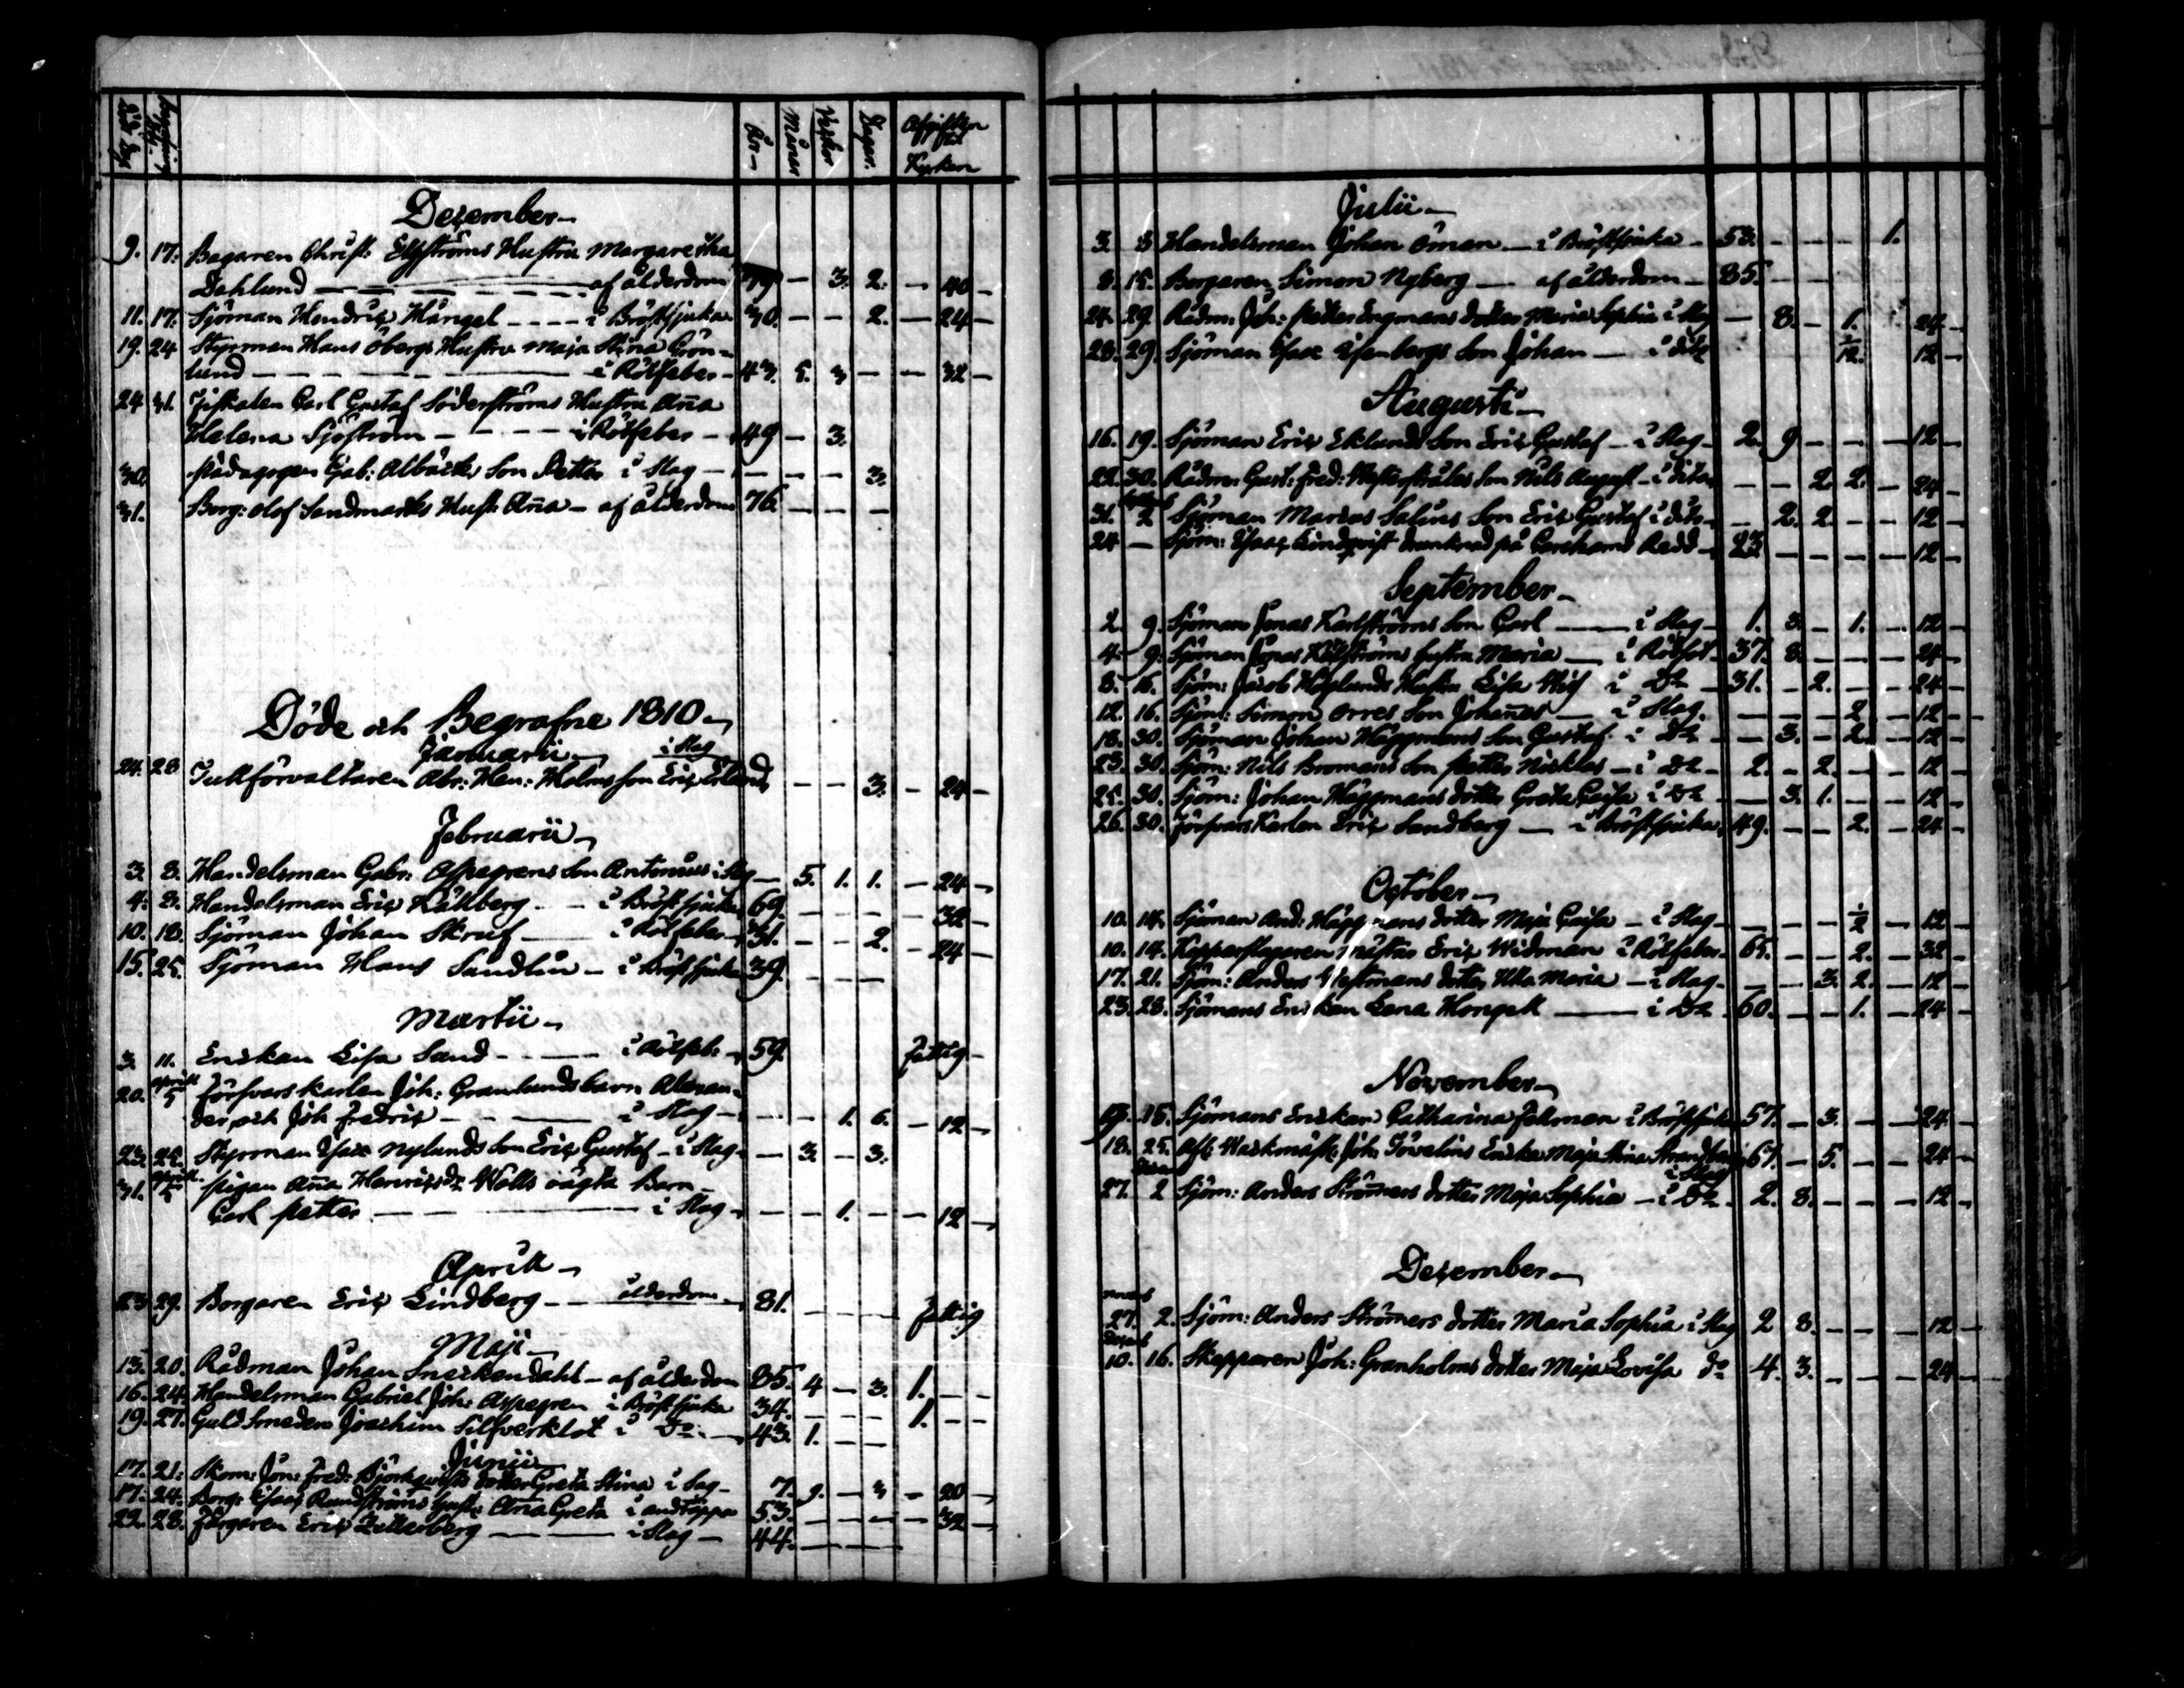 År Månar Vekor Dagar. Afgiften til Kyrkan
December
9. 17. Bagaren Christ: Elgströms Hustru Margaretha
Dahlund af ålderdom 79 — 3. 2. — 40 —
11. 17. Sjöman Hendric Hångel i Bröstsjuka 30. — — 2. — 24 —
19. 24 Styrman Hans Öbergs Hustru Maja Stina Grön-
lund i Rötfeber 43. 5. 3 — — 32 —
24 31. Fiskalen Carl Gustaf Söderströms Hustru Aña
Helena Sjöström i Rötfeber 49 — 3.
30. Pädagogen Gab: Albäcks Son Petter i Slag — — — 3.
31. Borg: Olof Sandmarks Hust: Aña af ålderdom 76 — — —
Döde och Begrafne 1810
Januarii i Slag
24. 28 Tullförvaltaren Abr: Hen: Holms son Eric Erland — — 3. — 24 —
Februarii
3. 8. Handelsman Gabr: Aspegrens Son Antonius i Slag — 5. 1. 1. — 24 —
4. 8. Handelsman Eric Källberg i Bröstsjuka 69. — — — 32 —
10. 18. Sjöman Johan Skruf i Rötfeber 31. — — 2. — 24 —
15. 25. Sjöman Hans Sundlin i Bröstsjuka 39. — — —
Martii
3. 11. Enckan Lisa Sand i Rötfeb: 59. fattig
20. April 5 Försvarskarlen Joh: Granlunds barn Alexan-
der och Joh Fredric i Slag — — 1. 6. — 12 —
23. 25. Styrman Isac Nylunds Son Eric Gustaf i Slag — 3 — 3.
31. April 5 Pigan Aña Henricsdr Walls oägta Barn
Carl Petter i Slag — — 1. — — 12 —
April
23 29. Borgaren Eric Lindberg ålderdom 81. — — — fattig
Maji
13. 20. Rådman Johan Sneckendahl af ålderdom 85. 4 — 3. 1. — —
16. 24. Handelsman Gabriel Joh: Aspegren i Bröstsjuka 34. — — — 1. — —
19. 27. Guldsmeden Joachim Silfverklot i Do 43. 1. — —
Junii
17. 21. Skom: Jon: Fred: Björkqvists dotter Greta Stina i Slag 7. 9. — 3 — 20 —
17. 24. Borg: Isaac Rundströms Hustr: Aña Greta i andtäppa 53. — — — — 32 —
22. 28. Färgaren Eric Zetterberg i Slag 44. — — —
Julii
3. 8 Handelsman Johan Öman i Bröstsjuka 53. — — — 1.
8. 15. Borgaren Simon Nyberg af ålderdom 85. — —
24. 29. Rådm: Joh: Petter Engmans dotter Maria Sophia i Slag — 8. — 1. 24 —
28. 29. Sjöman Isac Isenbergs Son Johan i dito 1/12. 12 —
Augusti
16. 19. Sjöman Eric Eklunds Son Eric Gustaf i Slag 2. 9 — — — 12 —
22. 30. Rådm: Gust: Fred: Westerstråles Son Nils August i dito — — 2. 2. — 24 —
31. 2 Sjöman Marcus Salins Son Eric Gustaf i dito — 2. 2. — — 12 —
24 — Sjöm: Isaac Lindqvist drunknad på Redd 22. — — — — 12 —
September
2. 9. Sjöman Jonas Karlströms Son Carl i Slag 1. 8. — 1. — 12 —
4. 9. Sjöman Jonas Hustru Maria i Rötfeb 37. 8. — — — 24 —
8. 16. Sjöm: Jacob Höglunds Hustru Lisa i Do 31. — 2. — — 24 —
12. 16. Sjöm: Simon Orres Son Johañes i Slag — — — 2 — 12 —
18. 30. Sjöman Johan Häggmans Son Gustaf i Do — 3. — 2. — 12 —
23. 30. Sjöm: Nils Bromans Son Petter Nicklas i Do 2. — 2. — — 12 —
25. 30. Sjöm: Johan Häggmans dotter Greta Caisa i Do — 3. 1. — — 12 —
26. 30. Försvars Karlen Eric Sandberg i Bröstsjuka 49. — — 2. — 24 —
October
10. 14. Sjöman And: Häggmans dotter Maja Caisa i Slag — — — 1/2 — 12 —
10. 14. Kopparslagaren mästar Eric Widman i Rötfeber 65. — — 2. — 32 —
17. 21. Sjöm: Anders Westmans dotter Ulla Maria i Slag — — 3. 2. — 12 —
23. 28. Sjömans Enckan Lena Hongell i Do 60. — — 1. — 24 —
November
13. 18. Sjömans Enckan Catharina Fellman i Bröstsjuka 57. — 3. — — 24 —
18. 25. Afl: Warkmäst: Joh: Enka Maja Stina Strandberg i Slag 67. — 5. — — 24 —
27. 2 Sjöm: Anders Strömers dotter Maja Sophia i Do 2. 8. — — — 12 —
December
27. 2. Sjöm: Anders Strömers dotter Maria Sophia i Slag 2 8. — — — 12 —
10. 16. Skepparen Joh: Granholms dotter Maja Lovisa do 4. 3. — — — 24 —